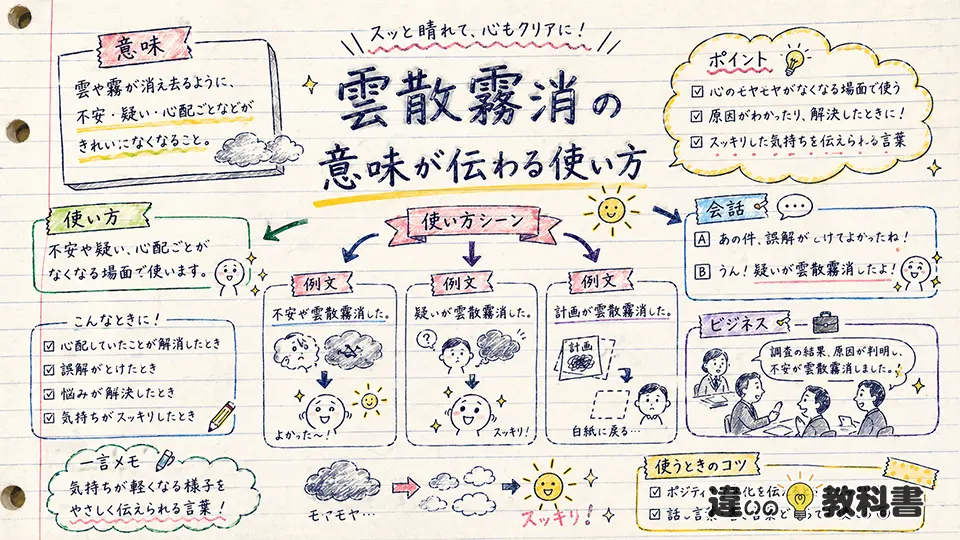 スッと晴れて、心もクリアに！
雲散霧消の
意味が伝わる使い方
意味
雲や霧が消え去るように、
不安・疑い・心配ごとなどが
きれいになくなること。
ポイント
心のモヤモヤがなくなる場面で使う
原因がわかったり、解決したときに！
スッキリした気持ちを伝えられる言葉
使い方
不安や疑い、心配ごとが
なくなる場面で使います。
使い方シーン
会話
A あの件、誤解がとけてよかったね！
B うん！疑いが雲散霧消したよ！
こんなときに！
心配していたことが解消したとき
誤解がとけたとき
悩みが解決したとき
気持ちがスッキリしたとき
例文
不安や雲散霧消した。
よかった〜！
例文
疑いが雲散霧消した。
?
スッキリ！
例文
計画が雲散霧消した。
計画
白紙に戻る…
ビジネス
調査の結果、原因が判明し、
不安が雲散霧消しました。
一言メモ
気持ちが軽くなる様子を
やさしく伝えられる言葉！
モヤモヤ…
スッキリ！
使うときのコツ
ポジティ
化を伝
話し言葉
違いの教科書